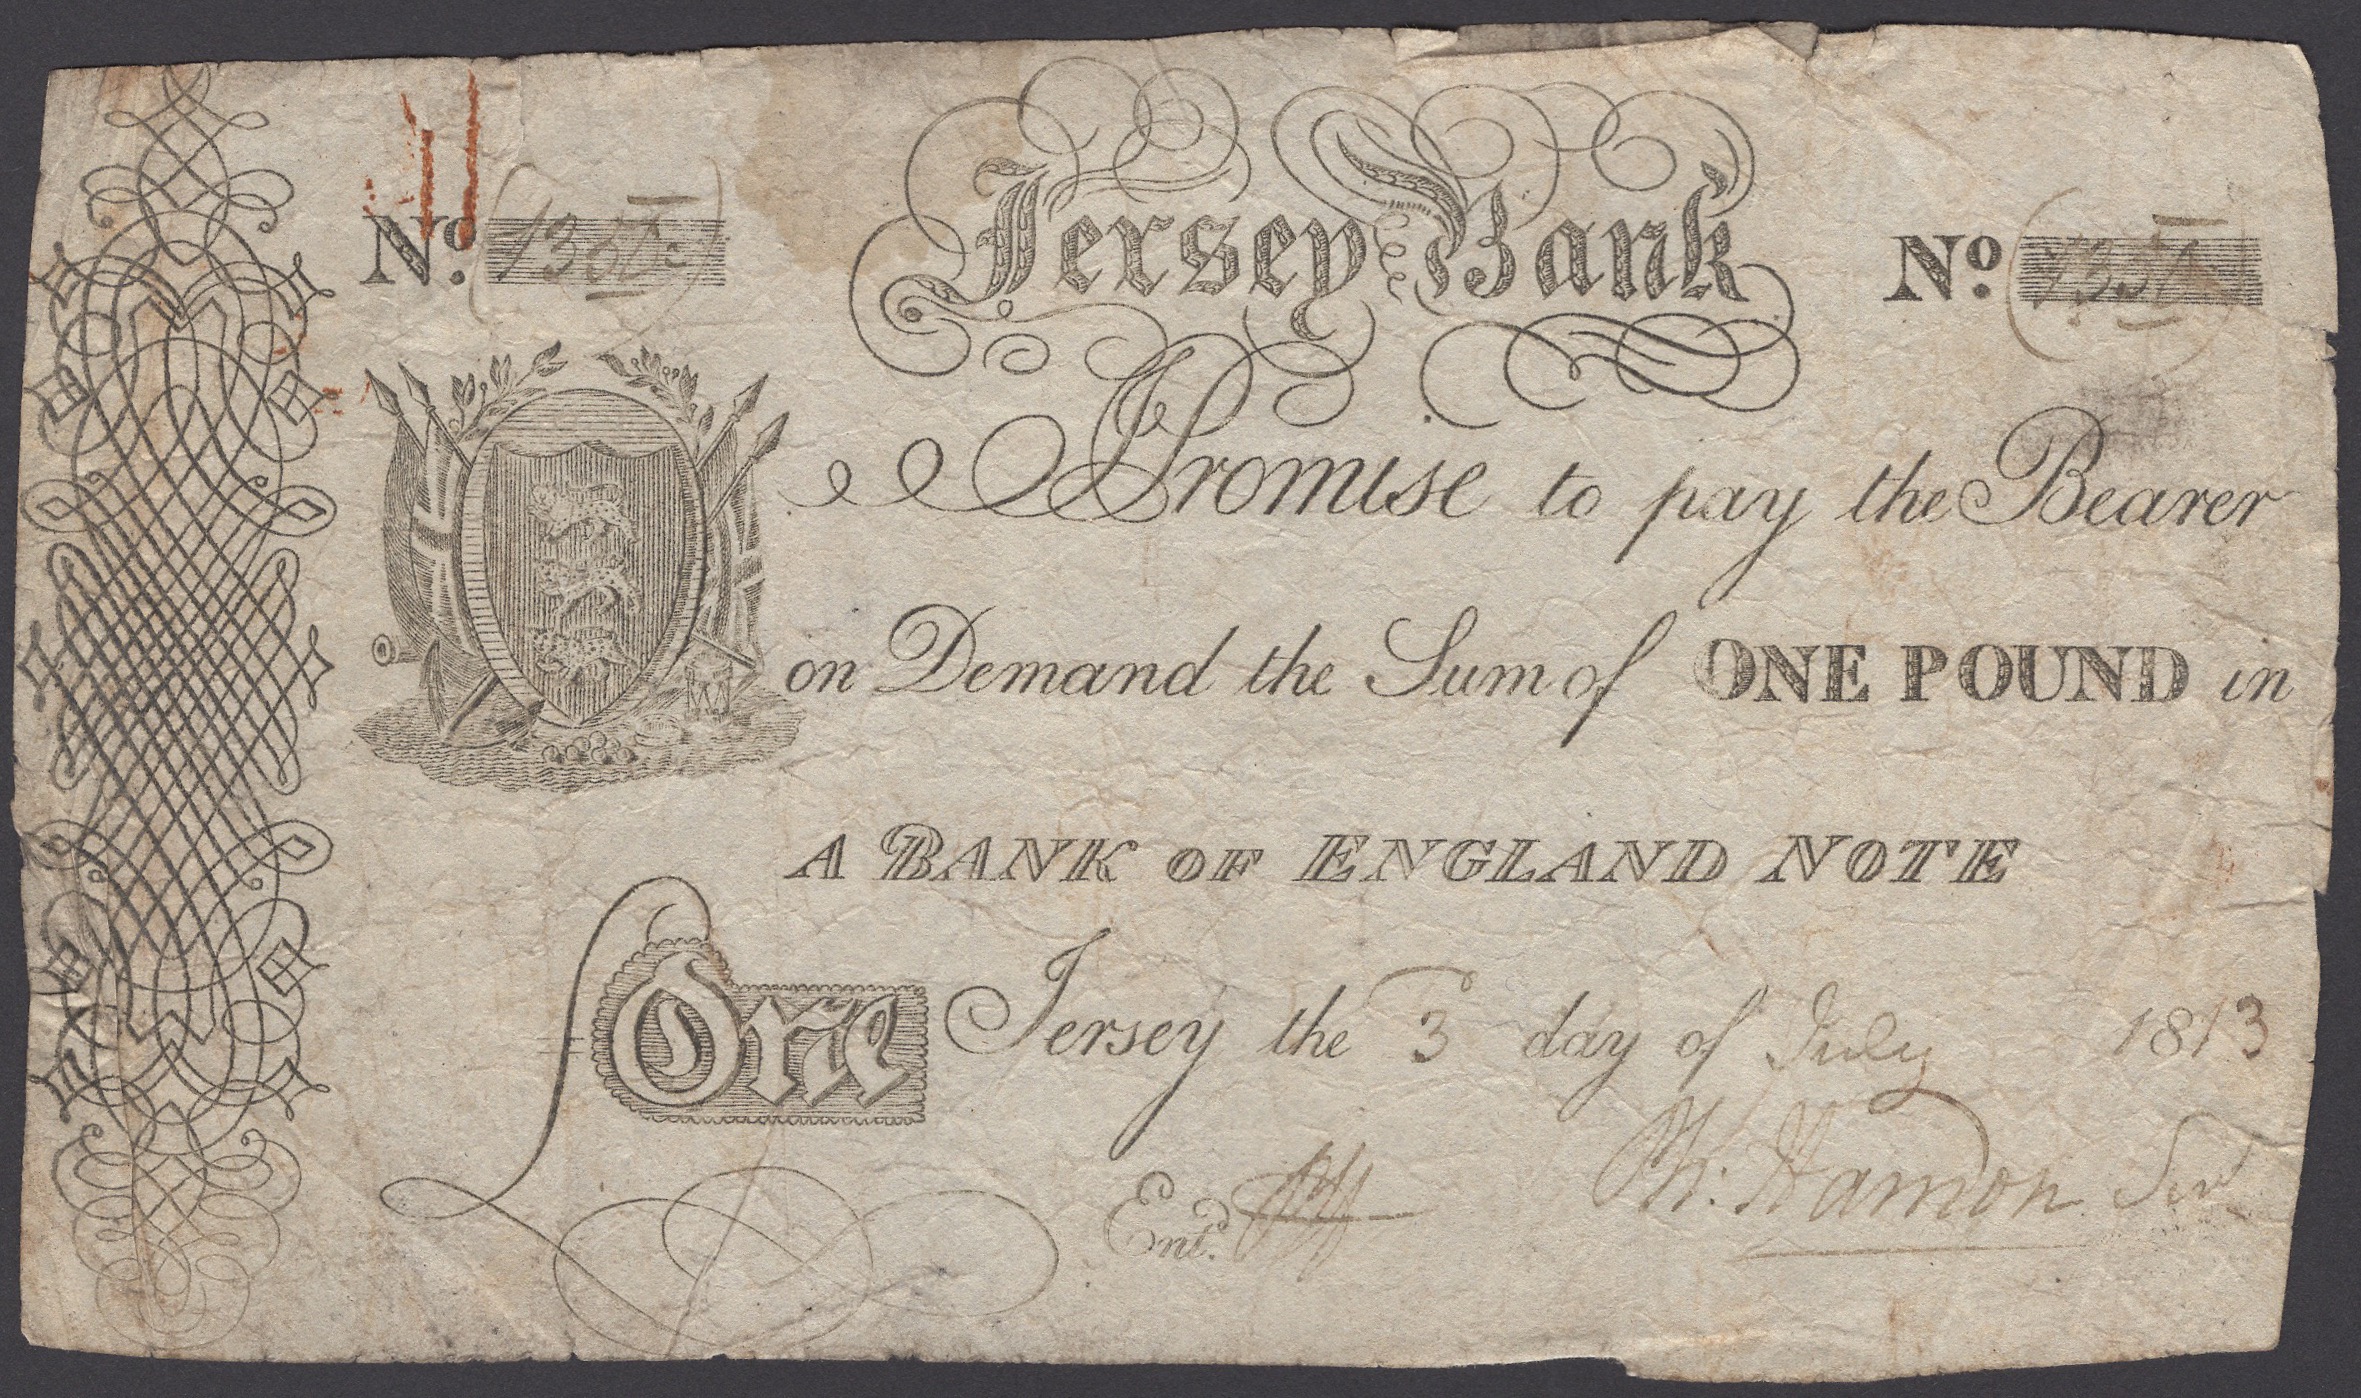 Jersey Bank
No. No.
Promise to pay the Bearer
on Demand the Sum of ONE POUND in
A BANK OF ENGLAND NOTE
One Jersey the 3 day of July 1813
Ent.d Ph: Hamon